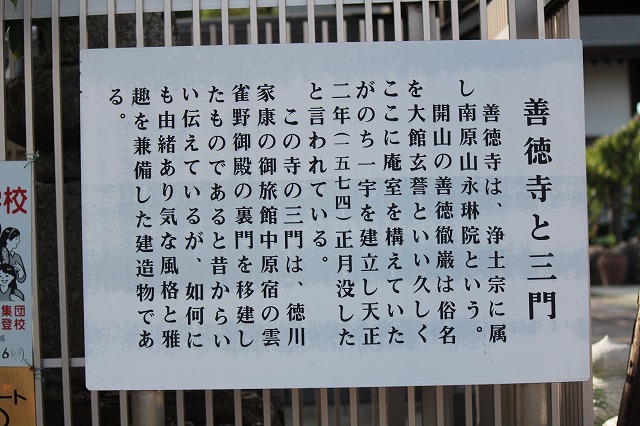 善徳寺と三門
善徳寺は、浄土宗に属
し南原山永琳院という。
開山の善徳徹巌は俗名
を大館玄誉といい久しく
ここに庵室を構えていた
がのち一宇を建立し天正
二年(一五七四)正月没した
と言われている。
この寺の三門は、徳川
家康の御旅館中原宿の雲
雀野御殿の裏門を移建し
たものであると昔からい
い伝えているが、如何に
も由緒あり気な風格と雅
趣を兼備した建造物であ
る。
学校
集団
登校
ート